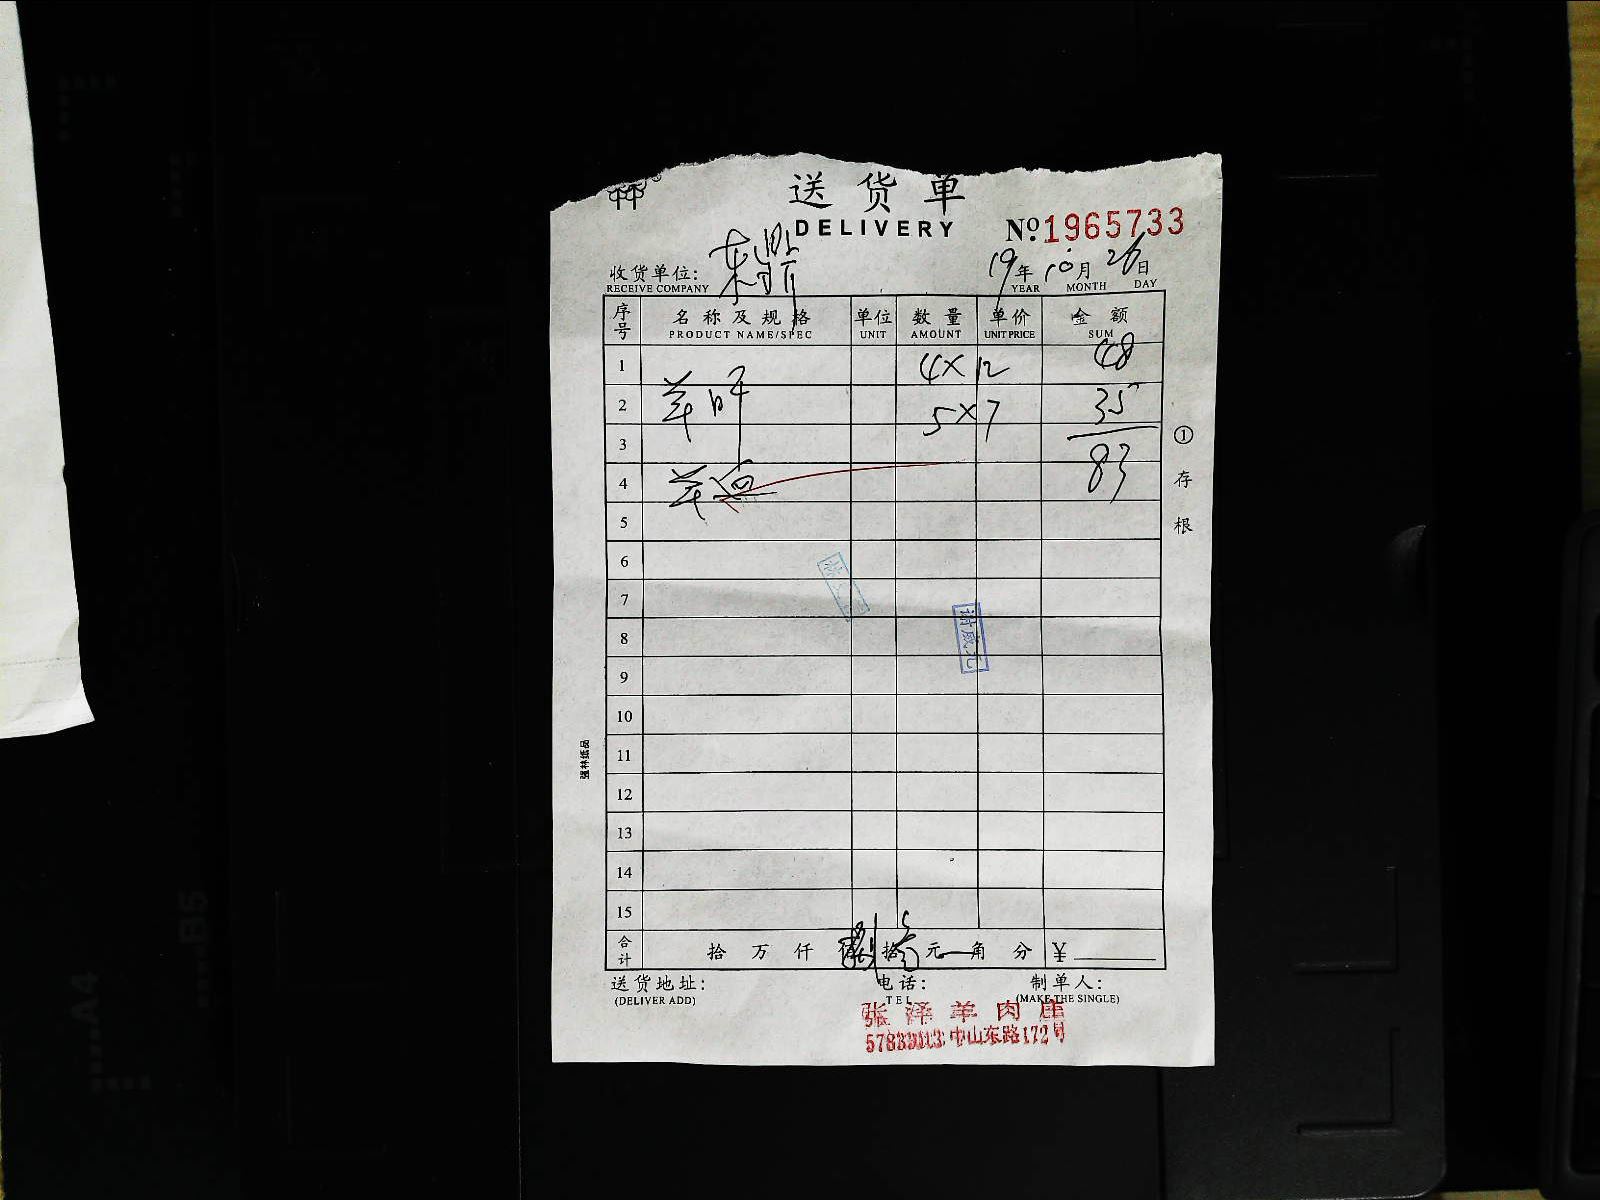 送货单
DELIVERY
No 1965733
收货单位: 东晶
RECEIVE COMPANY
19年 10月 26日
YEAR MONTH DAY
序号 名称及规格 单位 数量 单价 金额
PRODUCT NAME/SPEC UNIT AMOUNT UNIT PRICE SUM
1 4×12 48
2 羊 5×7 35
3
4 羊血 83
5
6
7
8
9
10
11
12
13
14
15
合计 拾 万 仟 拾 元 角 分 ¥
送货地址: 电话: 制单人:
(DELIVER ADD) TEL (MAKE THE SINGLE)
张泽羊肉庄
中山东路172号
①存根
强林纸品
A4
B5